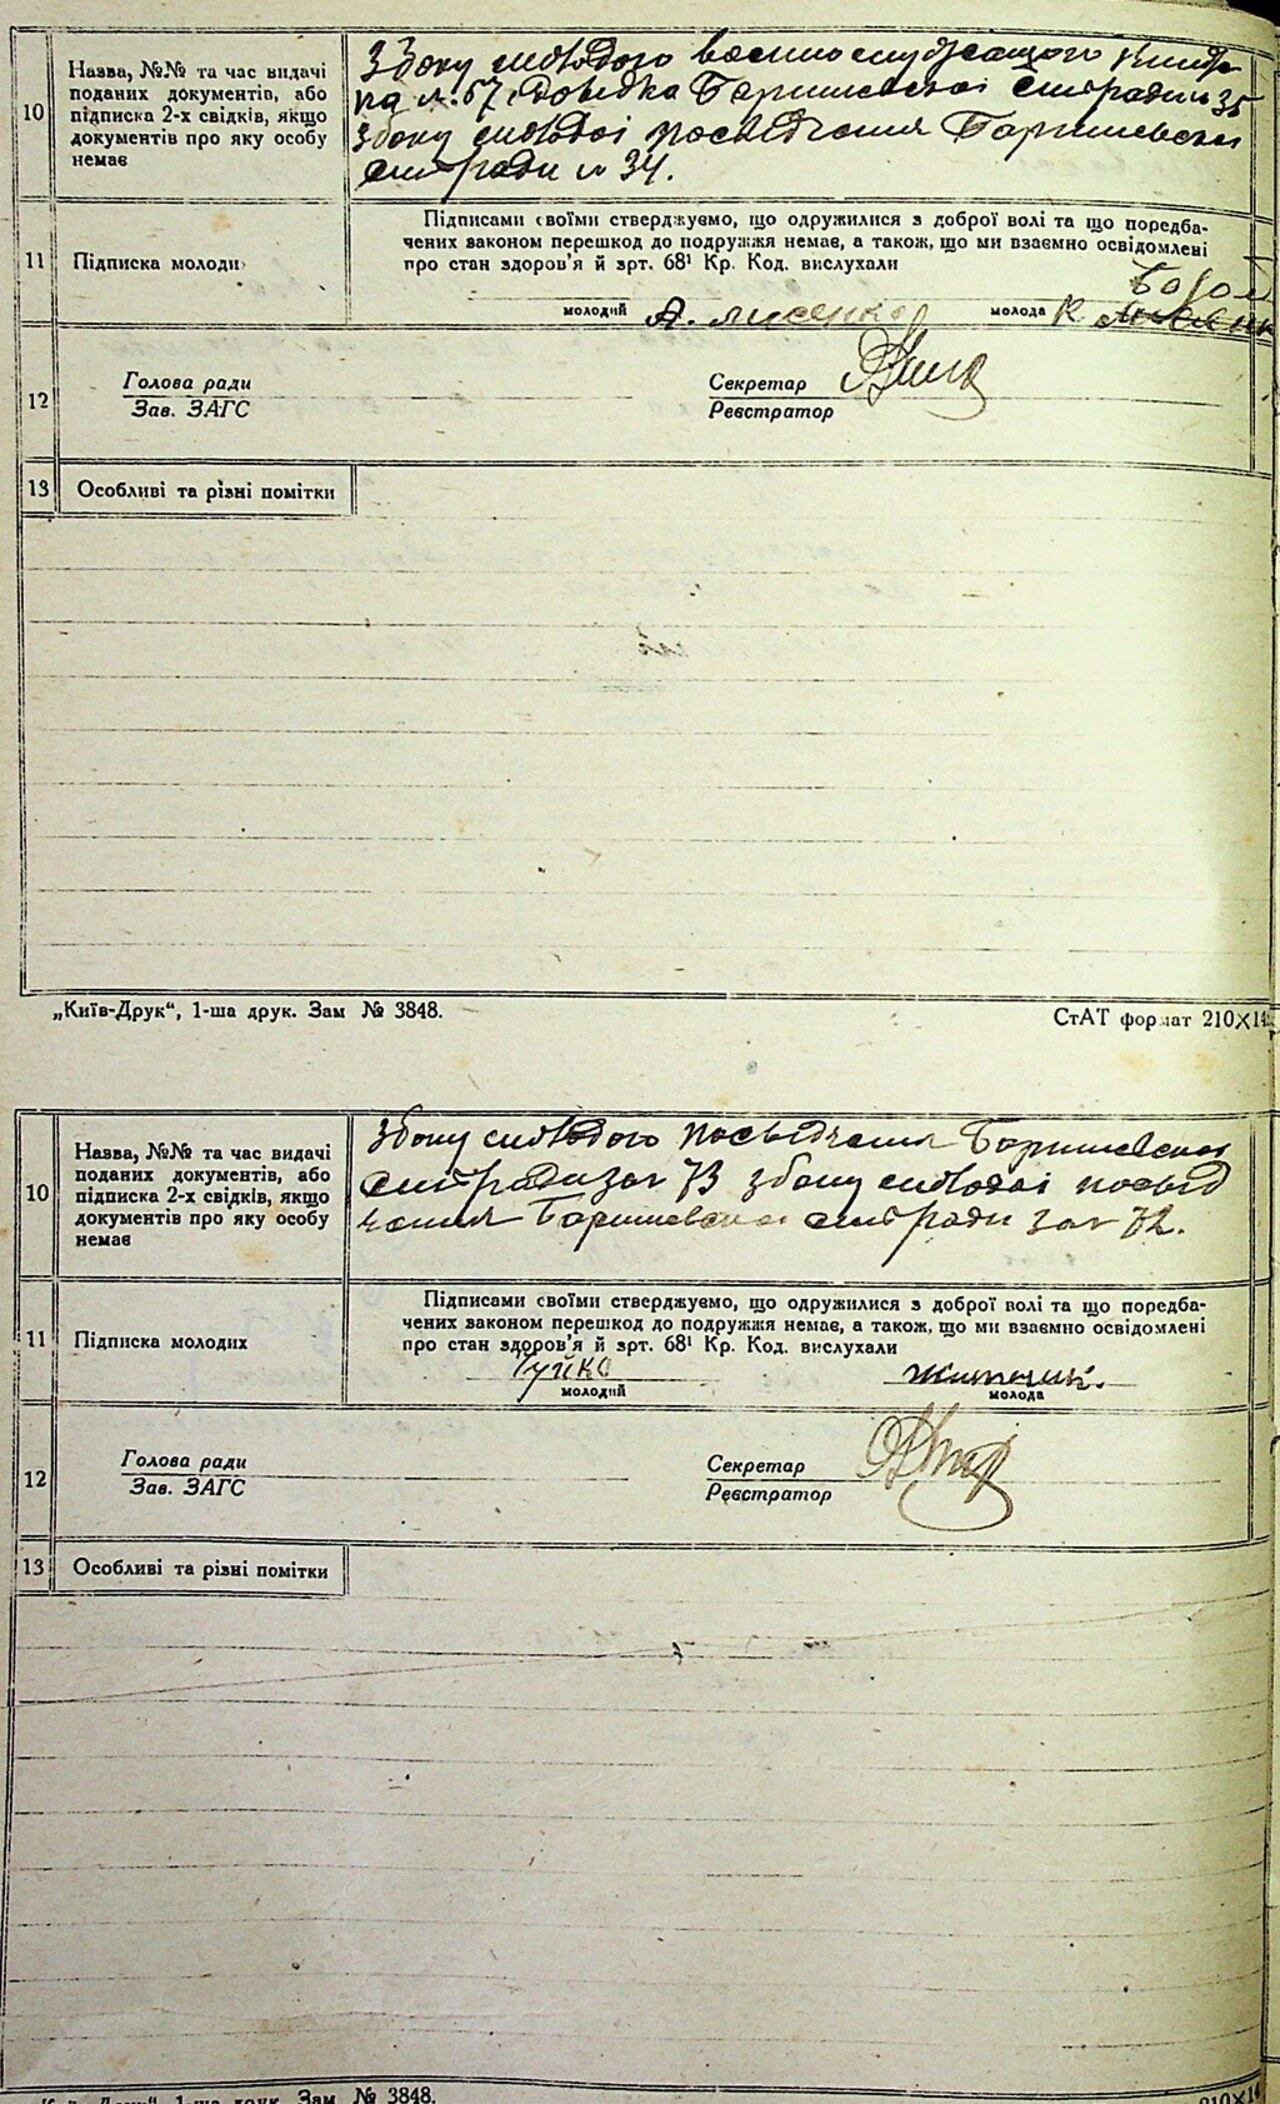 10
Назва, №№ та час видачі
поданих документів, або
підписка 2-х свідків, якщо
документів про яку особу
немає
З боку молодого военнослужащого книж
ка № 67, довідка Баришевскої сільради № 35
з боку молодої посвідчення Баришевскої
сільради № 34.
11
Підписка молоди
Підписами своїми стверджуємо, що одружилися з доброї волі та що поредба-
чених законом перешкод до подружжя немає, а також, що ми взаємно освідомлені
про стан здоров'я й зрт. 68¹ Кр. Код. вислухали
молодий А. Лисенко молода К.
12
Голова ради
Зав. ЗАГС
Секретар
Реєстратор
13 Особливі та різні помітки
„Київ-Друк“, 1-ша друк. Зам № 3848. СтАТ формат 210×14
10
Назва, №№ та час видачі
поданих документів, або
підписка 2-х свідків, якщо
документів про яку особу
немає
З боку молодого посвідчення Баришевскої
сільради за № 73 з боку молодої посвід
чення Баришевскої сільради за № 72.
11
Підписка молодих
Підписами своїми стверджуємо, що одружилися з доброї волі та що поредба-
чених законом перешкод до подружжя немає, а також, що ми взаємно освідомлені
про стан здоров'я й зрт. 68¹ Кр. Код. вислухали
Гуйко
молодий молода
12
Голова ради
Зав. ЗАГС
Секретар
Реєстратор
13 Особливі та різні помітки
1-ша друк. Зам № 3848. 210×14